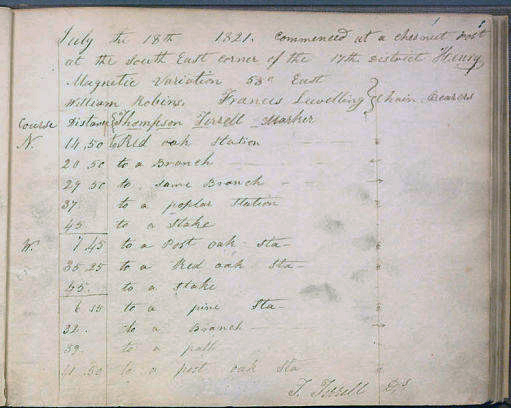 July the 18th 1821. Commenced at a chesnut post
at the South East corner of the 17th district Henry
Magnetic Variation East
William Robins. Frances Lewelling } Chain Bearers
Course Distance { Thompson Terrell Marker
N. 14,50 to Red oak Station
20 50 to a Branch
29 50 to same Branch
37. to a poplar Station
45. to a Stake
W. 7.45 to a Post oak Sta
35.25 to a Red oak Sta
45. to a Stake
to a pine Sta
32. to a Branch
39. to a path
41.50 to a post oak Sta
T. Terrell D.S